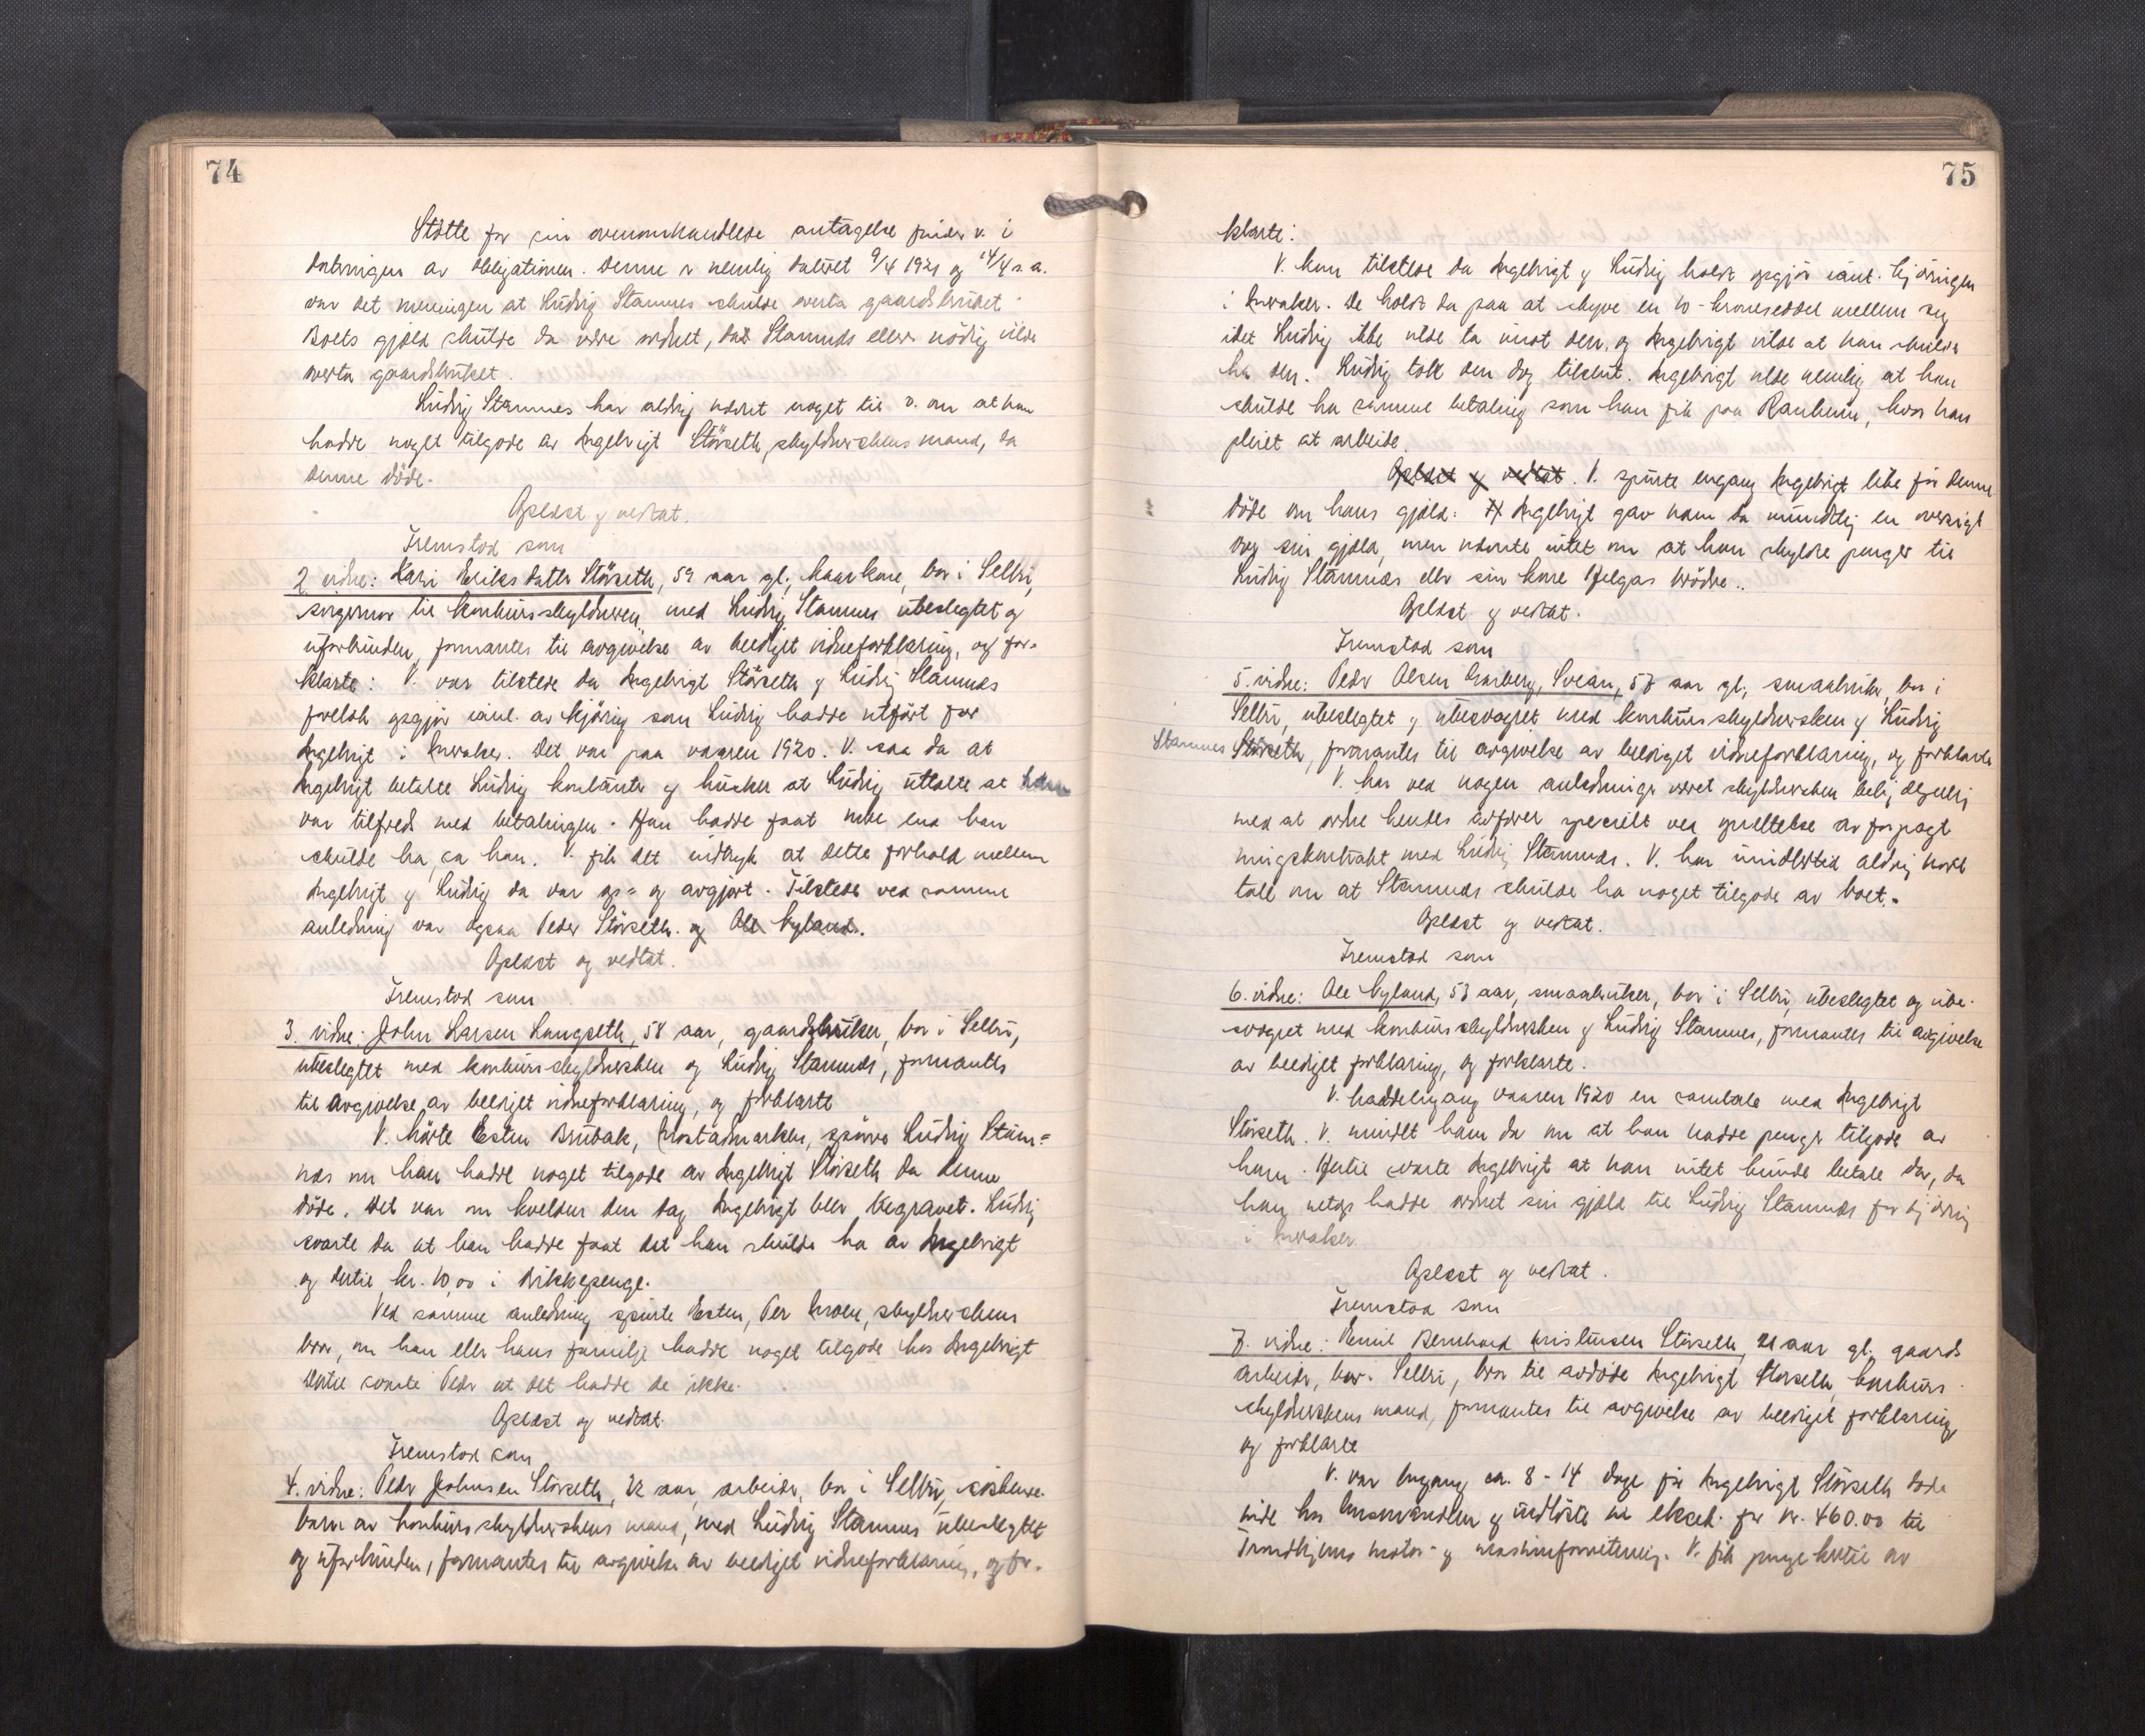 74
Støtte for sin ovenomhandlede antagelse finder v. i
dateringen av obligationen. Denne er nemlig datert 9/4 1921 og 14/4 s.a.
var det meningen at Ludvig Stamnes skulde overta gaardsbruket.
Boets gjæld skulde da være ordnet, da Stamnæs ellers nødig vilde
overta gaardsbruket.
Ludvig Stamnes har aldrig nævnt noget til v. om at han
hadde noget tilgode av Ingebrigt Störseth, skyldnerskens mand, da
denne døde.
Oplæst og vedtat.
Fremstod som
2 vidne: Kari Eriksdatter Störseth, 59 aar gl., kaarkone, bor i Selbu,
svigermor til konkursskyldneren, med Ludvig Stamnes ubeslegtet og
uforbunden, formantes til avgivelse av beediget vidneforklaring, og for-
klarte: V. var tilstede da Ingebrigt Störseth og Ludvig Stamnæs
foretok opgjør vånl. av kjöring som Ludvig hadde utført for
Ingebrigt i Kvaker. Det var paa vaaren 1920. V. saa da at
Ingebrigt betalte Ludvig kontanter og husker at Ludvig uttalte at han
var tilfreds med betalingen. Han hadde faat mere end han
skulde ha, sa han. V. fik det indtryk at dette forhold mellem
Ingebrigt og Ludvig da var op- og avgjort. Tilstede ved samme
anledning var ogsaa Peder Störseth. og Ole Nyland.
Oplæst og vedtat.
Fremstod som
3. vidne: John Larsen Langseth, 58 aar, gaardbruker, bor i Selbu,
ubeslegtet med konkursskyldnersken og Ludvig Stamnæs, formantes
til avgivelse av beediget vidneforklaring, og forklarte
V. hørte Esten Brubak, Mostadmarken, spørre Ludvig Stam-
næs om han hadde noget tilgode av Ingebrigt Störseth da denne
døde. Det var om kvelden den dag Ingebrigt blev begravet. Ludvig
svarte da at han hadde faat det han skulde ha av Ingebrigt
og dertil kr. 10,00 i drikkepenge.
Ved samme anledning spurte Esten, Per Moen, skyldnerskens
bror, om han eller hans familje hadde noget tilgode hos Ingebrigt
Dertil svarte Peder at det hadde de ikke.
Oplæst og vedtat.
Fremstod som
4. vidne: Peder Johnsen Störseth, 22 aar, arbeider, bor i Selbu, söskende-
barn av konkursskyldnerskens mand, med Ludvig Stamnes ubeslegtet
og uforbunden, formantes til avgivelse av beediget vidneforklaring, og for-
75
klarte:
V. kom tilstede da Ingebrigt og Ludvig holdt opgjör vånl. kjöringen
i Kvaker. De holdt da paa at skyve en 10-kroneseddel mellem sig
idet Ludvig ikke vilde ta imot den, og Ingebrigt vilde at han skulde
ha den. Ludvig tok den dog tilslut. Ingebrigt vilde nemlig at han
skulde ha samme betaling som han fik paa Ranheim, hvor han
pleiet at arbeide.
Oplæst og vedtat. V. spurte engang Ingebrigt like før denne
døde om hans gjæld. Ingebrigt gav ham da mundtlig en oversigt
over sin gjæld, men nævnte intet om at han skyldte penger til
Ludvig Stamnæs eller sin kone Helgas brødre.
Oplæst og vedtat.
Fremstod som
5. vidne: Peder Olsen Garberg, Svean, 57 aar gl., smaabruker, bor i
Selbu, ubeslegtet og ubesvogret med konkursskyldnersken og Ludvig
Stamnes Störseth, formantes til avgivelse av beediget vidneforklaring, og forklarte
V. har ved nogen anledninger været skyldnersken behjelpelig
med at ordne hendes affærer specielt ved oprettelse av forpagt
ningskontrakt med Ludvig Stamnæs. V. har imidlertid aldrig hørt
tale om at Stamnæs skulde ha noget tilgode av boet.
Oplæst og vedtat.
Fremstod som
6. vidne: Ole Nyland, 53 aar, smaabruker, bor i Selbu, ubeslegtet og ube-
svogret med konkursskyldnersken og Ludvig Stamnes, formantes til avgivelse
av beediget forklaring, og forklarte.
V. hadde engang vaaren 1920 en samtale med Ingebrigt
Störseth. V. mindet ham da om at han hadde penger tilgode av
ham. Hertil svarte Ingebrigt at han intet kunde betale da, da
han netop hadde ordnet sin gjæld til Ludvig Stamnæs for kjöring
i Kvaker.
Oplæst og vedtat.
Fremstod som
7. vidne: Emil Bernhard Kristensen Störseth, 21 aar gl. gaards
arbeider, bor i Selbu, bror til avdøde Ingebrigt Störseth, konkurs
skyldnerskens mand, formantes til avgivelse av beediget forklaring
og forklarte
V. var engang ca. 8-14 dage før Ingebrigt Störseth døde
inde hos lensmanden og indløste en vksel. for kr. 460.00 til
Trondhjems motor- og maskinforretning. V. fik penge hertil av